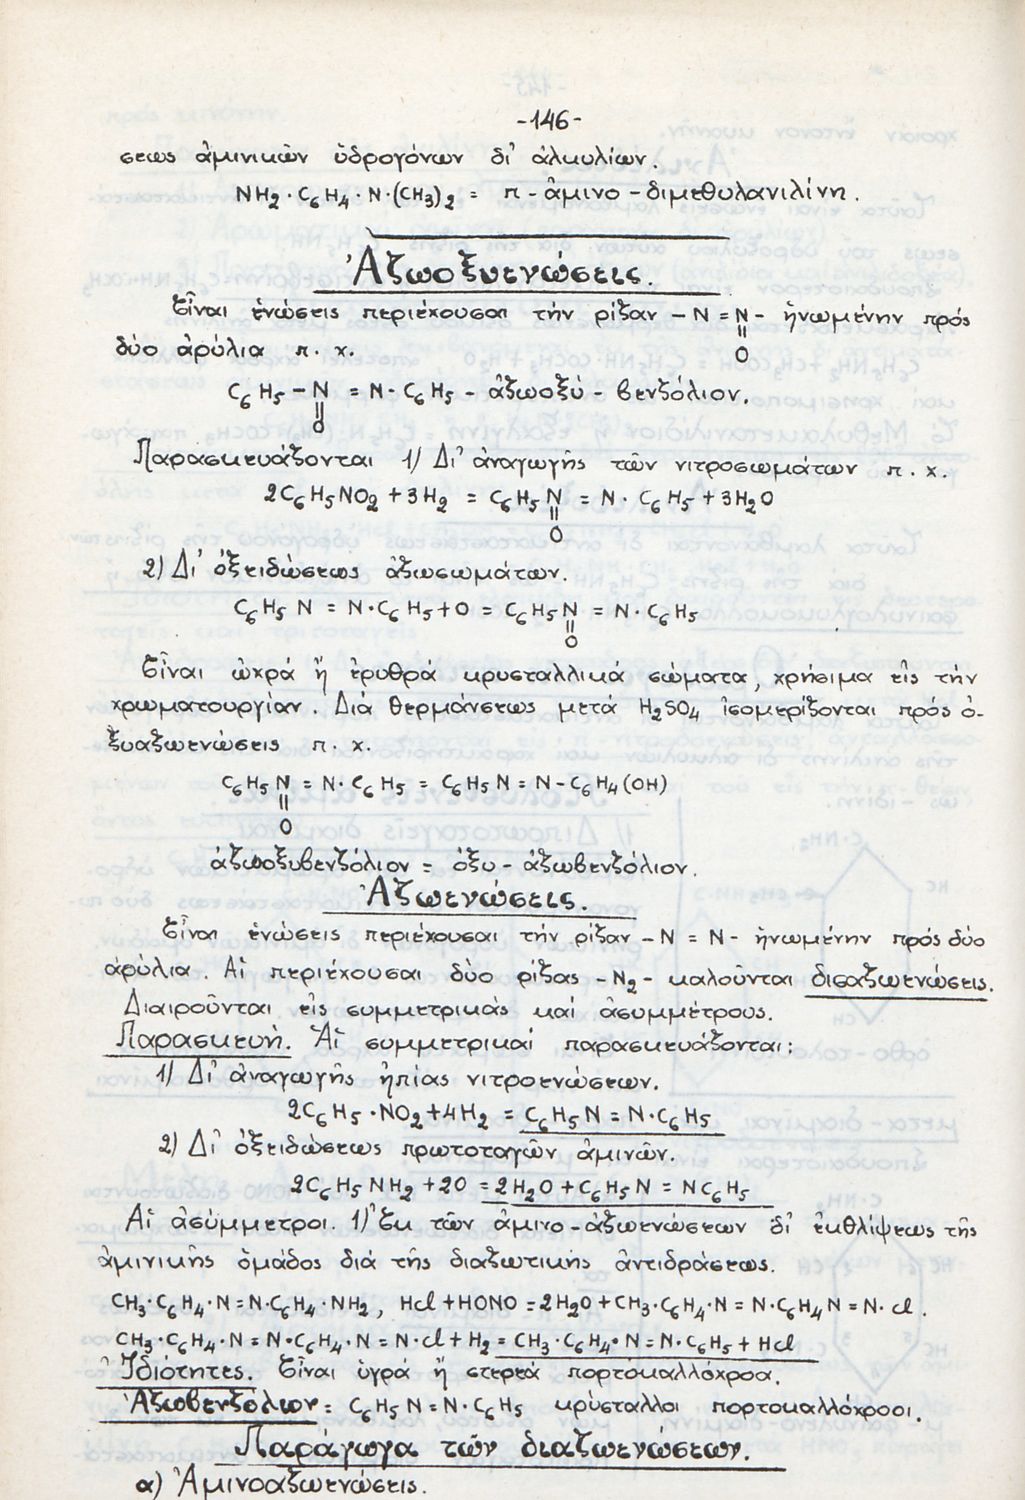 -146-
σεως ἀμινικῶν ὑδρογόνων δι' ἀλκυλίων.
NH₂·C₆H₄·N·(CH₃)₂ = π-ἀμινο-διμεθυλανιλίνη.
Ἀζωοξυενώσεις.
Εἶναι ἑνώσεις περιέχουσαι τήν ρίζαν -N=N- ἡνωμένην πρός
δύο ἀρύλια π.χ. O
C₆H₅-N = N·C₆H₅ - ἀζωοξύ-βενζόλιον.
O
Παρασκευάζονται 1) Δι' ἀναγωγῆς τῶν νιτροσωμάτων π.χ.
2C₆H₅NO₂+3H₂ = C₆H₅N = N·C₆H₅+3H₂O
O
2) Δι' ὀξειδώσεως ἀζωσωμάτων.
C₆H₅N = N·C₆H₅+O = C₆H₅N = N·C₆H₅
O
Εἶναι ὠχρά ἤ ἐρυθρά κρυσταλλικά σώματα, χρήσιμα εἰς τήν
χρωματουργίαν. Διά θερμάνσεως μετά H₂SO₄ ἰσομερίζονται πρός ὀ-
ξυαζωενώσεις π.χ.
C₆H₅N = N·C₆H₅ = C₆H₅N = N-C₆H₄(OH)
O
ἀζωοξυβενζόλιον = ὀξυ-ἀζωβενζόλιον.
Ἀζωενώσεις.
Εἶναι ἑνώσεις περιέχουσαι τήν ρίζαν -N=N- ἡνωμένην πρός δύο
ἀρύλια. Αἱ περιέχουσαι δύο ρίζας -N₂- καλοῦνται δισαζωενώσεις.
Διαιροῦνται εἰς συμμετρικάς καί ἀσυμμέτρους.
Παρασκευή. Αἱ συμμετρικαί παρασκευάζονται:
1) Δι' ἀναγωγῆς ἠπίας νιτροενώσεων.
2C₆H₅·NO₂+4H₂ = C₆H₅N = N·C₆H₅
2) Δι' ὀξειδώσεως πρωτοταγῶν ἀμινῶν.
2C₆H₅NH₂+2O = 2H₂O+C₆H₅N = NC₆H₅
Αἱ ἀσύμμετροι. 1) Ἐκ τῶν ἀμινο-ἀζωενώσεων δι' ἐκθλίψεως τῆς
ἀμινικῆς ὁμάδος διά τῆς διαζωτικῆς ἀντιδράσεως.
CH₃·C₆H₄·N=N·C₆H₄·NH₂, HCl+HONO=2H₂O+CH₃·C₆H₄·N=N·C₆H₄N=N·Cl.
CH₃·C₆H₄·N=N·C₆H₄·N=N·Cl+H₂=CH₃·C₆H₄·N=N·C₆H₅+HCl
Ἰδιότητες. Εἶναι ὑγρά ἤ στερεά πορτοκαλλόχροα.
Ἀζωβενζόλιον = C₆H₅N=N·C₆H₅ κρύσταλλοι πορτοκαλλόχροοι.
Παράγωγα τῶν διαζωενώσεων.
α) Ἀμινοαζωενώσεις.